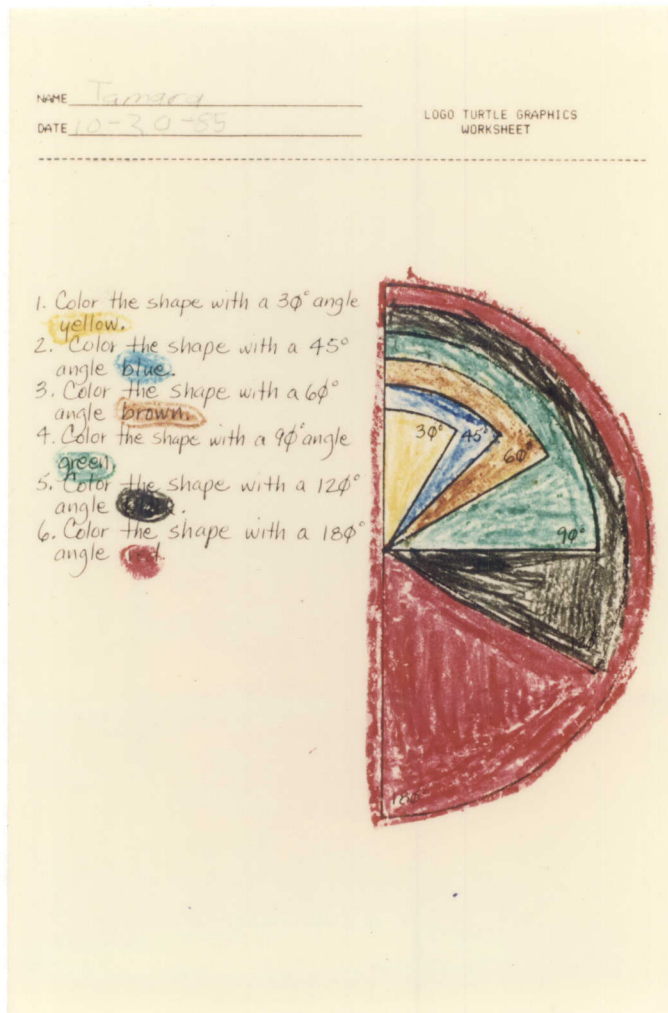 NAME Tamara
DATE 10-30-85
LOGO TURTLE GRAPHICS
WORKSHEET
1. Color the shape with a 3Ø° angle
yellow.
2. Color the shape with a 45°
angle blue.
3. Color the shape with a 6Ø°
angle brown.
4. Color the shape with a 9Ø° angle
green
5. Color the shape with a 12Ø°
angle .
6. Color the shape with a 18Ø°
angle red
3Ø°
45°
6Ø°
9Ø°